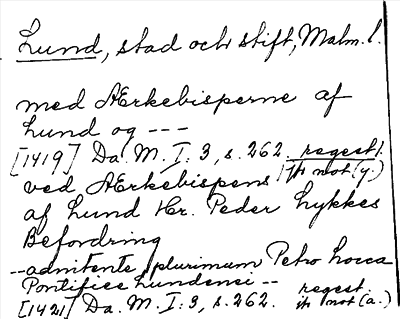 Lund, stad och stift, Malm. l.
med Ærkebisperne af
Lund og ---
[1419] Da. M. I: 3, s. 262. regest.
ved Ærkebispens ith not (y.)
af Lund Hr. Peder Lykkes
Befordring
-- adnitente plurimum Petro Locca
Pontifice Lundensi --
regest.
[1421] Da. M. I: 3, s. 262. ith not (a.)